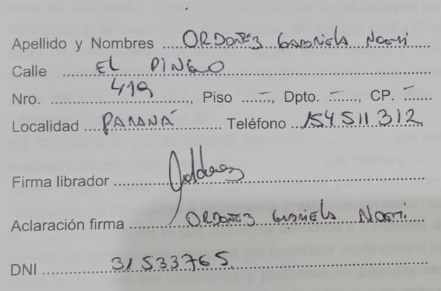 Apellido y Nombres ... ORDOÑEZ Gabriela Noemi
Calle EL PINGO
Nro. 419, Piso -, Dpto. -, CP. -
Localidad PARANÁ Teléfono 154511312
Firma librador
Aclaración firma ORDOÑEZ Gabriela Noemi
DNI 31533765